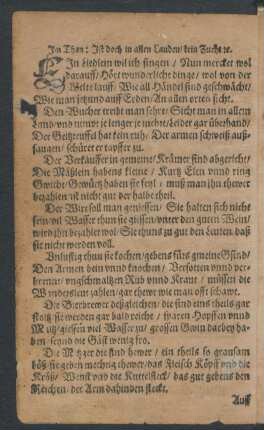 Im Thon: Ist doch in allen Landen kein Fucht ꝛc.
EIn Liedlein wil ich singen / Nun mercket wol
darauff / Hört wunderliche dinge / wol von der
Welte lauff: Wie all Händel sind geschwächt /
Wie man jetzund auff Erden / An allen orten sicht.
Den Wucher treibt man sehre / Sicht man in allem
Land / vnd nimpt je lenger je mehre / leider gar überhand /
Der Geitzteuffel hat kein ruh / Der armen schweiß auß-
saugen / schüret er tapffer zu.
Der Verkäuffer in gemeine / Krämer sind abgericht /
Die Mäßlein habens kleine / Kurtz Elen vnnd ring
Gwicht / Gewürtz haben sie feyl / muß man ihn thewer
bezahlen ist nicht gut der halbe theil.
Der Wirt soll man geniessen / Sie halten sich nichts
sein / viel Wasser thun sie giessen / vnter den guten Wein /
wird ihn bezahlet wol / Sie thuns zu gut den Leuten, daß
sie nicht werden voll.
Vnlustig thun sie kochen / gebens fürs gmeine Gsind /
Den Armen bein vnnd knochen / Versotten vnnd ver-
brennt / vngschmaltzen Rub vnnd Kraut / müssen die
zahlen / gar thewr wie man offt schawt.
Die Bierbrewer deßgleichen / die sind eins theils gar
stoltz / sie werden gar bald reiche / sparen Hopffen vnnd
Maltz / giessen viel Wasser zu / grossen Gwin darbey ha-
ben / seynd die Gäst wenig fro.
Die Metzger die sind hewer / ein theils so gransam
böß / sie geben mechtig thewer / das Fleisch Köpff vnd die
Kröß / Wenst vnd die Kuttelfleck / das gut gebens den
Reichen / der Arm dahinden steckt.
Auff